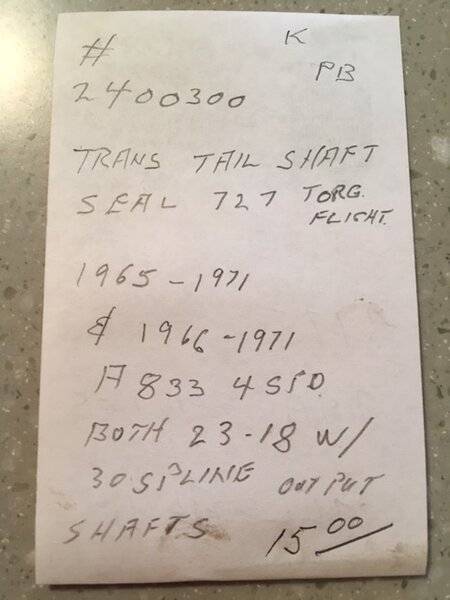 # K
PB
2400300
TRANS TAIL SHAFT
SEAL 727 TORG.
FLIGHT.
1965-1971
& 1966-1971
A833 4 SPD.
BOTH 23-18 W/
30 SPLINE OUTPUT
SHAFTS 15 00